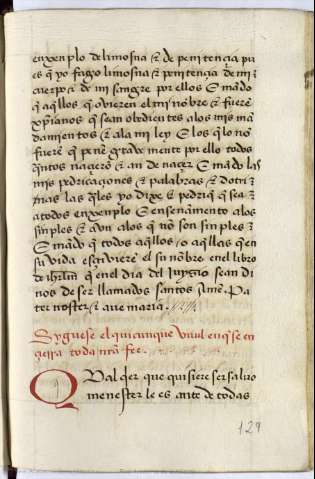 enxenplo de limosna & de penitençia pu
es q̃ yo fago limosna & penitençia de mi
cuerpo & de mi sangre por ellos E mãdo
q̃ aq̃llos q̃ ovieren el mi nõbre & fuerẽ
xp̃ianos q̃ sean obedientes a los mis mã
damientos & a la mi ley E los q̃ lo nõ
fuerẽ q̃ penẽ grave mente por ello todos
q̃ntos naçierõ & an de naçer E mãdo las
mis pedricaçones & palabras & dotri
nas las q̃les yo dixe & pedriq̃ q̃ sea
a todos enxenplo E enseñamento a los
sinples & avn a los q̃ no son sinples
E mãdo q̃ todos aq̃llos o aq̃llas q̃ en
su vida escriviere el su nõbre en el libro
de ihrl̃m q̃ en el dia del juyzio sean di
nos de ser llamados santos Amẽ. Pa
ter noster & ave maria.
Syguese el quicunque vult en q̃ se en
çierra toda nr̃a fee.
Qual q̃er que quisiere ser saluo
menester le es ante de todas
129